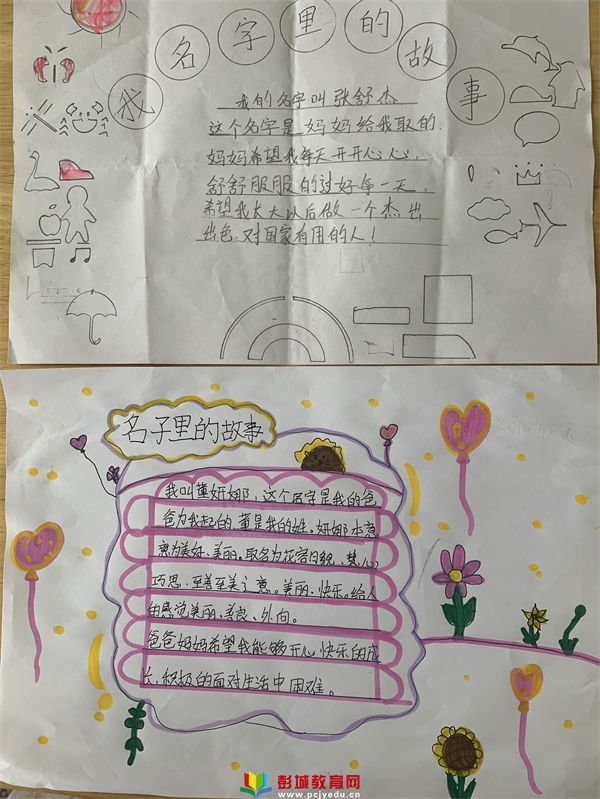 我名字里的故事
我的名字叫张舒杰
这个名字是妈妈给我取的.
妈妈希望我每天开开心心,
舒舒服服的过好每一天,
希望我长大以后做一个杰出
出色.对国家有用的人!
名子里的故事
我叫董妍娜,这个名字是我的爸
爸为我起的董是我的姓。妍娜本意
为美好、美丽。取名为花容月貌、慧心
巧思、至善至美之意。美丽、快乐。给人
的感觉美丽、善良、外向。
爸爸妈妈希望我能够开心快乐的成
长,积极的面对生活中困难。
彭城教育网
www.pcjyedu.cn